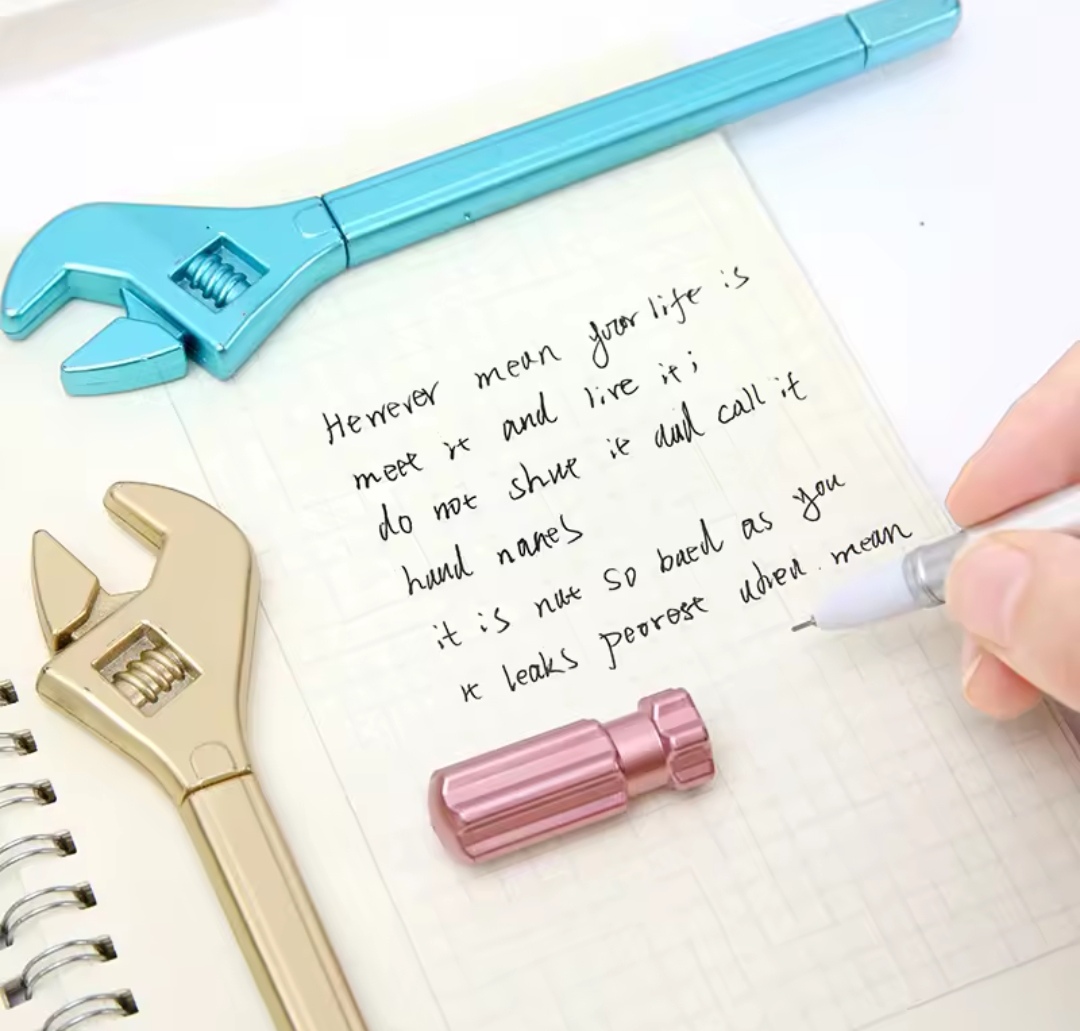 Herrever mean your life is
meet it and live it;
do not shue it and call it
hand nanes
it is not so baed as you
it leaks peorest when mean